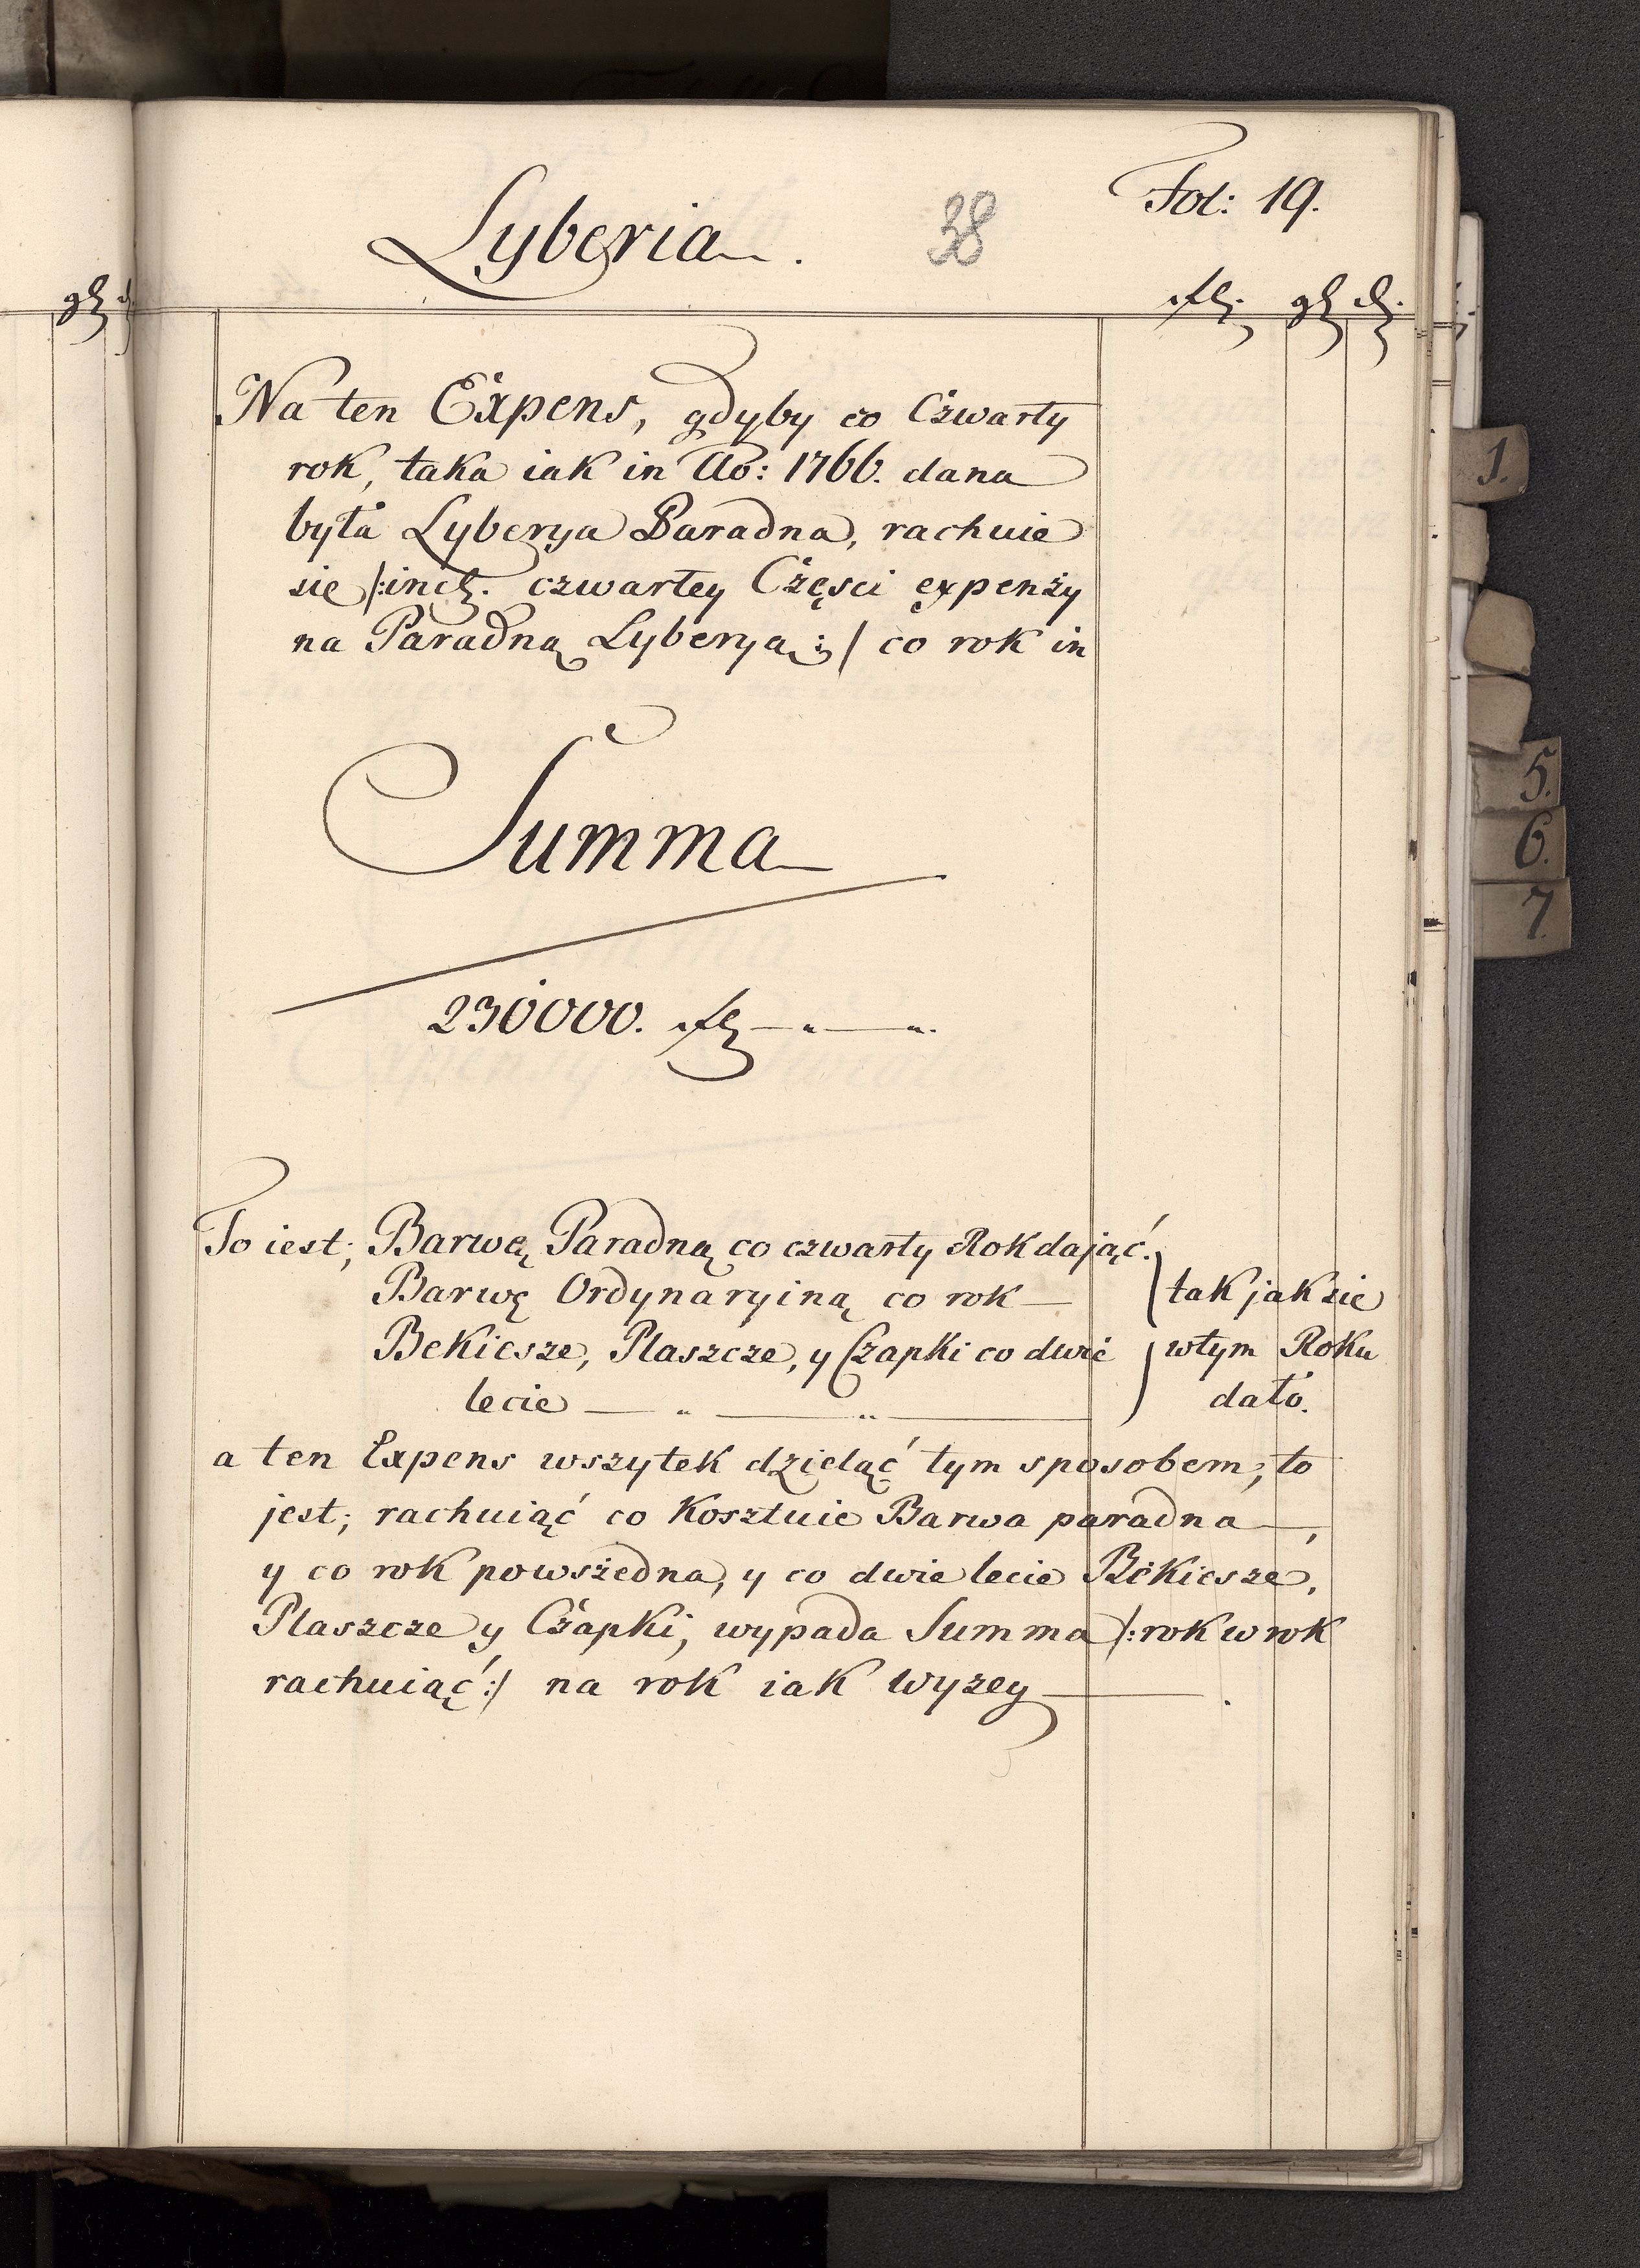 Lyberia.
38
Fol: 19.
Na ten Expens, gdyby co Czwarty
rok, taka iak in Ao: 1766. dana
była Lyberya Paradna, rachuie
sie /:incl. czwartey Częsci expenży
na Paradną Lyberyą:/ co rok in
Summa
230000. fl
To iest; Barwę Paradną co czwarty Rok dająć.
Barwę Ordynaryiną co rok
Bekiesze, Plaszcze, y Czapki co dwie
lecie
tak jak sie
w tym Roku
dało.
a ten Expens wszytek dzieląć tym sposobem; to
jest; rachuiąć co Kosztuie Barwa paradna,
y co rok powszedna, y co dwie lecie Bekiesze,
Plaszcze y Czapki, wypada Summa /:rok w rok
rachuiąć:/ na rok iak wyzey.
1.
5.
6.
7.